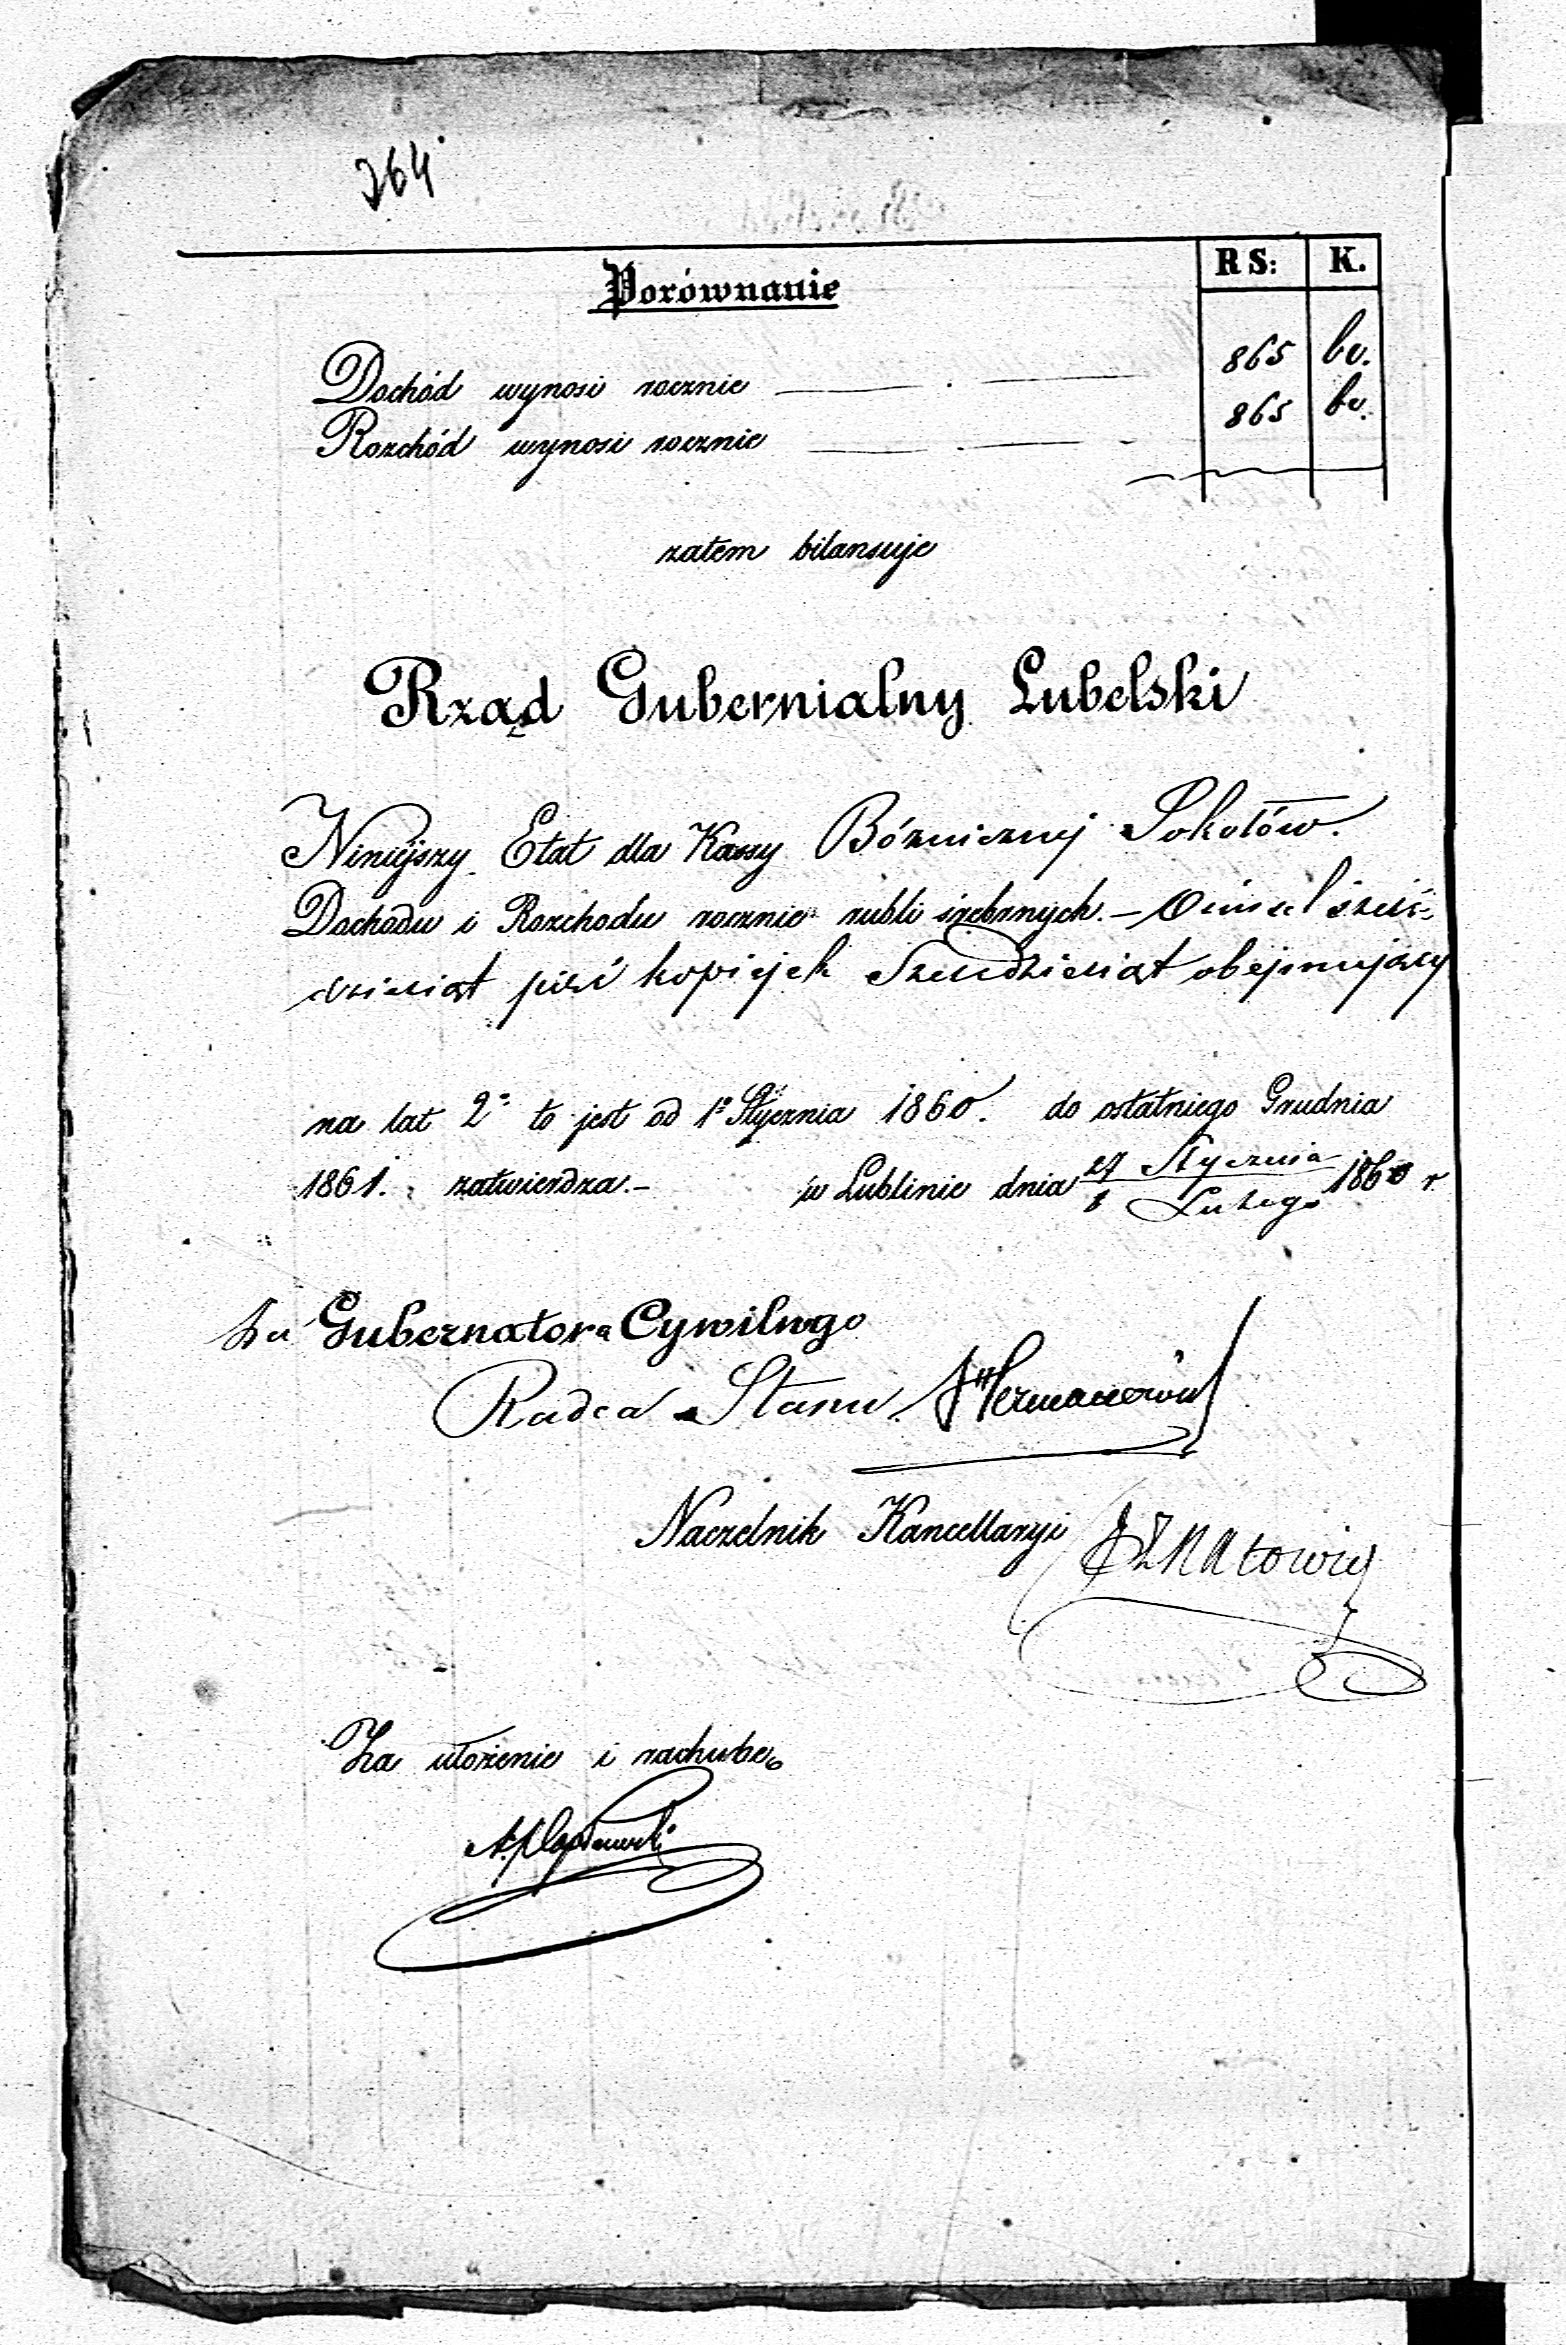 264
Porównanie
RS: K.
Dochód wynosi rocznie 865 60.
Rozchód wynosi rocznie 865 60.
zatem bilansuje
Rząd Gubernialny Lubelski
Niniejszy Etat dla Kassy Bóżnicznej Sokołów.
Dochodu i Rozchodu rocznie rubli śrebrnych. – Ośmset sześć-
dziesiąt pięć kopiejek Sześćdziesiąt obejmujący
na lat 2 to jest od 1º Stycznia 1860. do ostatniego Grudnia
1861. zatwierdza. – w Lublinie dnia 27 Stycznia 1860 r
Lutego
za Gubernatora Cywilnego
Radca Stanu
Naczelnik Kancellaryi
Za ułożenie i rachubę